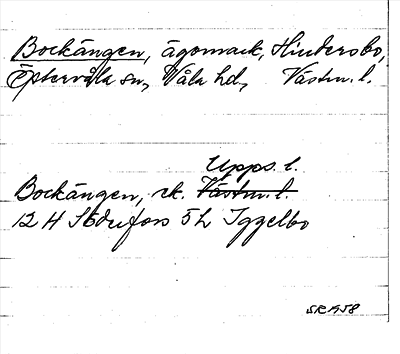 Bockängen, ägomark, Hindersbo,
Östervåla sn, Våla hd, Västm. l.
Upps. l.
Bockängen, ek. Västm. l.
12 H Söderfors 5 h Iggelbo
SR 1958